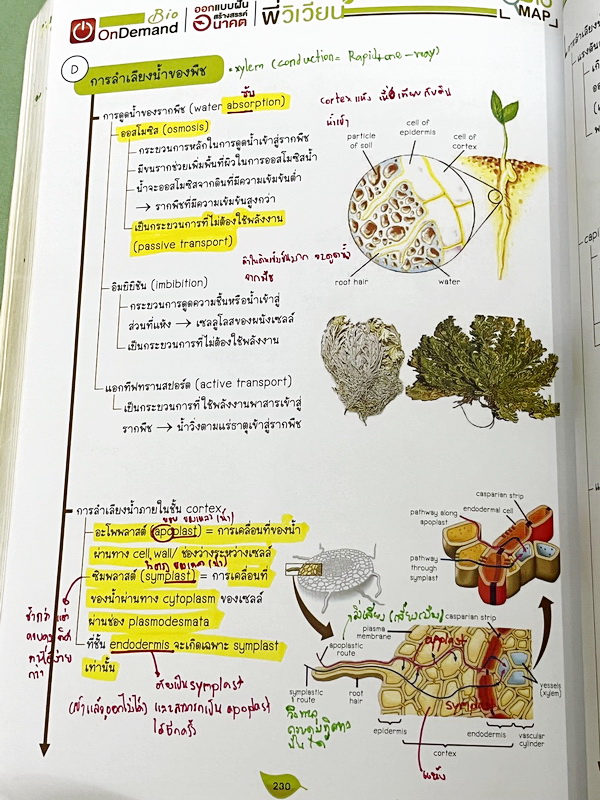 Bio
OnDemand
ออกแบบฝัน
สร้างสรรค์
อนาคต
พี่วิเวียน
MAP
D
การลำเลียงน้ำของพืช
• xylem (conduction = Rapid + one-way)
การดูดน้ำของรากพืช (water absorption)
ซับ
ออสโมซิส (osmosis)
กระบวนการหลักในการดูดน้ำเข้าสู่รากพืช
มีขนรากช่วยเพิ่มพื้นที่ผิวในการออสโมซิสน้ำ
น้ำจะออสโมซิสจากดินที่มีความเข้มข้นต่ำ
→ รากพืชที่มีความเข้มข้นสูงกว่า
เป็นกระบวนการที่ไม่ต้องใช้พลังงาน
(passive transport)
น้ำเข้า
particle
of soil
cell of
epidermis
cell of
cortex
root hair
water
จากพืช
อิมบิบิชัน (imbibition)
กระบวนการดูดความชื้นหรือน้ำเข้าสู่
ส่วนที่แห้ง → เซลลูโลสของผนังเซลล์
เป็นกระบวนการที่ไม่ต้องใช้พลังงาน
แอกทีฟทรานสปอร์ต (active transport)
เป็นกระบวนการที่ใช้พลังงานพาสารเข้าสู่
รากพืช → น้ำวิ่งตามแร่ธาตุเข้าสู่รากพืช
การลำเลียงน้ำภายในชั้น cortex
อะโพพลาสต์ (apoplast) = การเคลื่อนที่ของน้ำ
ผ่านทาง cell wall/ ช่องว่างระหว่างเซลล์
ซิมพลาสต์ (symplast) = การเคลื่อนที่
ของน้ำผ่านทาง cytoplasm ของเซลล์
ผ่านช่อง plasmodesmata
ที่ชั้น endodermis จะเกิดเฉพาะ symplast
เท่านั้น
ต้องเป็น symplast
(เข้าแล้วออกไม่ได้) และสามารถเป็น apoplast
ได้อีกครั้ง
casparian strip
pathway along
apoplast
endodermal cell
pathway
through
symplast
casparian strip
plasma
membrane
apoplastic
route
apoplast
symplast
symplastic
route
root
hair
epidermis
cortex
endodermis
vascular
cylinder
vessels
(xylem)
230